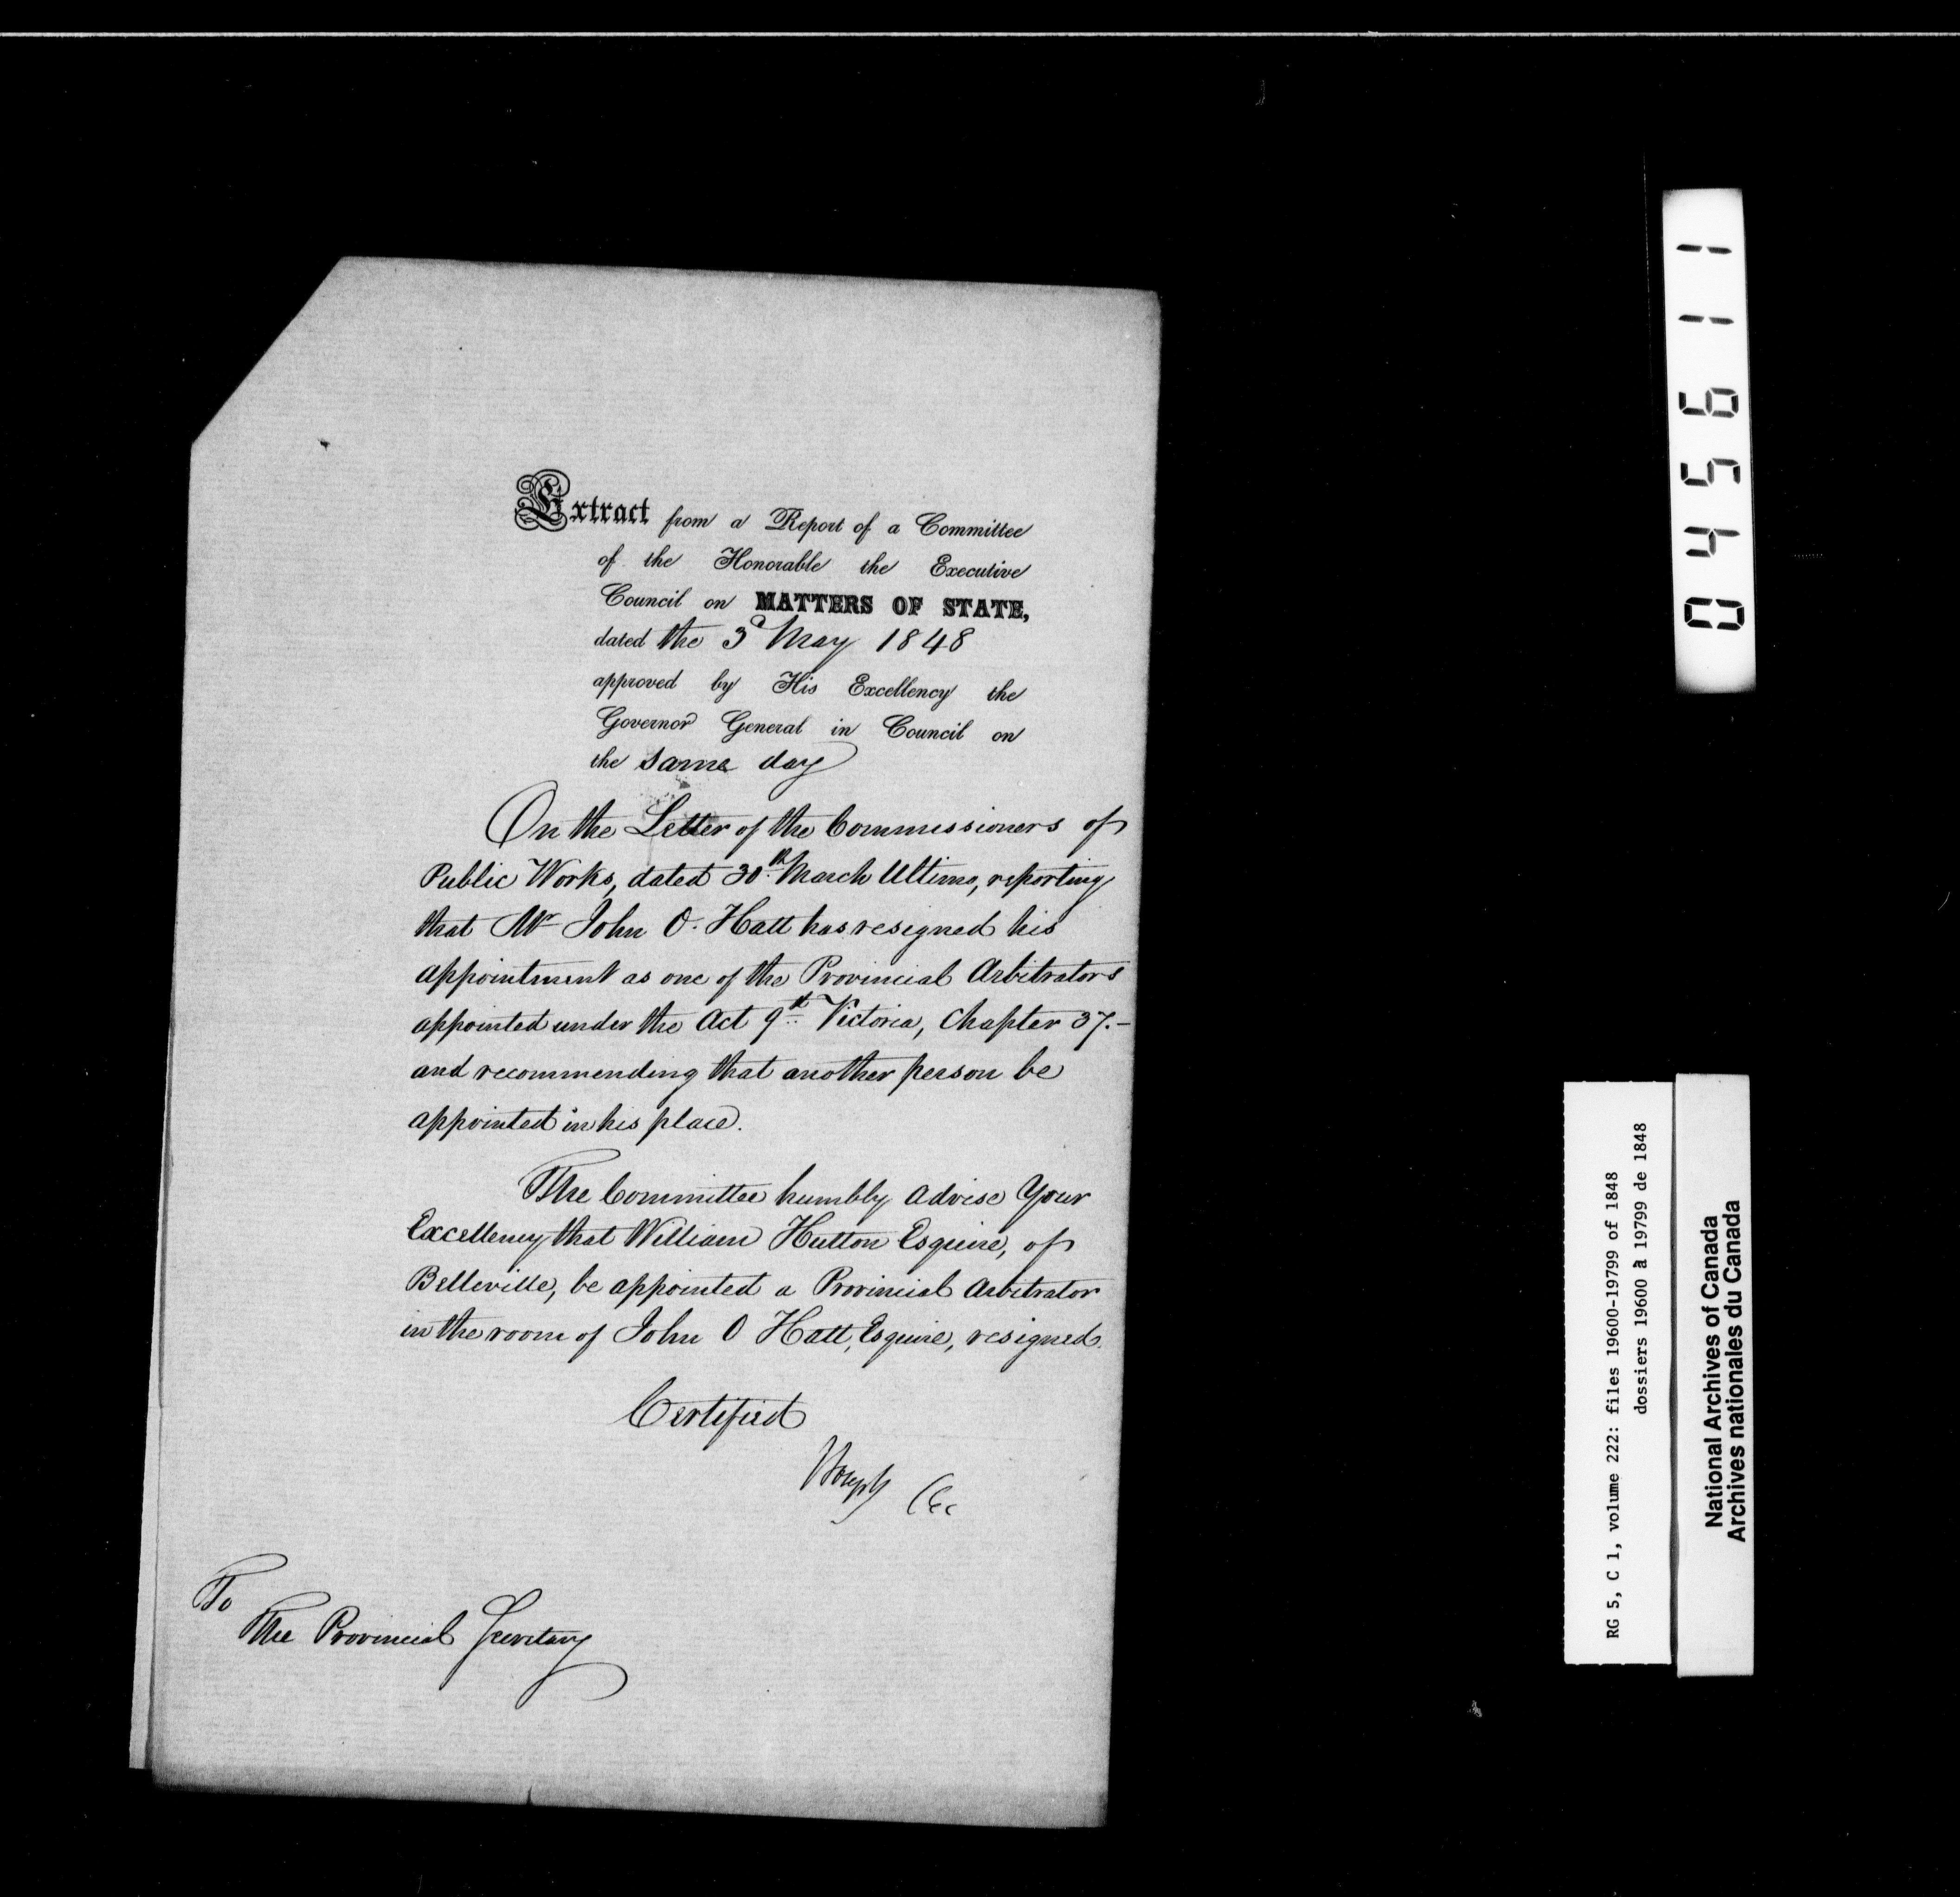 Extract from a Report of a Committee
of the Honorable the Executive
Council on MATTERS OF STATE,
dated the 3d May 1848
approved by His Excellency the
Governor General in Council on
the same day
On the Letter of the Commissioners of
Public Works, dated 30th March Ultimo, reporting
that Mr John O. Hatt has resigned his
appointment as one of the Provincial Arbitrators
appointed under the Act 9th Victoria, Chapter 37.-
and recommending that another person be
appointed in his place.
The Committee humbly advise Your
Excellency that William Hutton Esquire, of
Belleville, be appointed a Provincial Arbitrator
in the room of John O Hatt, Esquire, resigned.
Certified
To
The Provincial Secretary
045611
RG 5, C 1, volume 222: files 19600-19799 of 1848
dossiers 19600 à 19799 de 1848
National Archives of Canada
Archives nationales du Canada